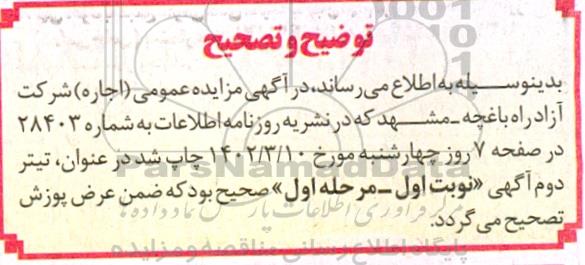 توضیح و تصحیح
بدینوسیله به اطلاع می‌رساند، در آگهی مزایده عمومی (اجاره) شرکت
آزادراه باغچه ـ مشهد که در نشریه روزنامه اطلاعات به شماره ۲۸۴۰۳
در صفحه ۷ روز چهارشنبه مورخ ۱۴۰۲/۳/۱۰ چاپ شد در عنوان، تیتر
دوم آگهی «نوبت اول ـ مرحله اول» صحیح بود که ضمن عرض پوزش
تصحیح می گردد.
ParsNamadData
پایگاه اطلاع رسانی مناقصه و مزایده